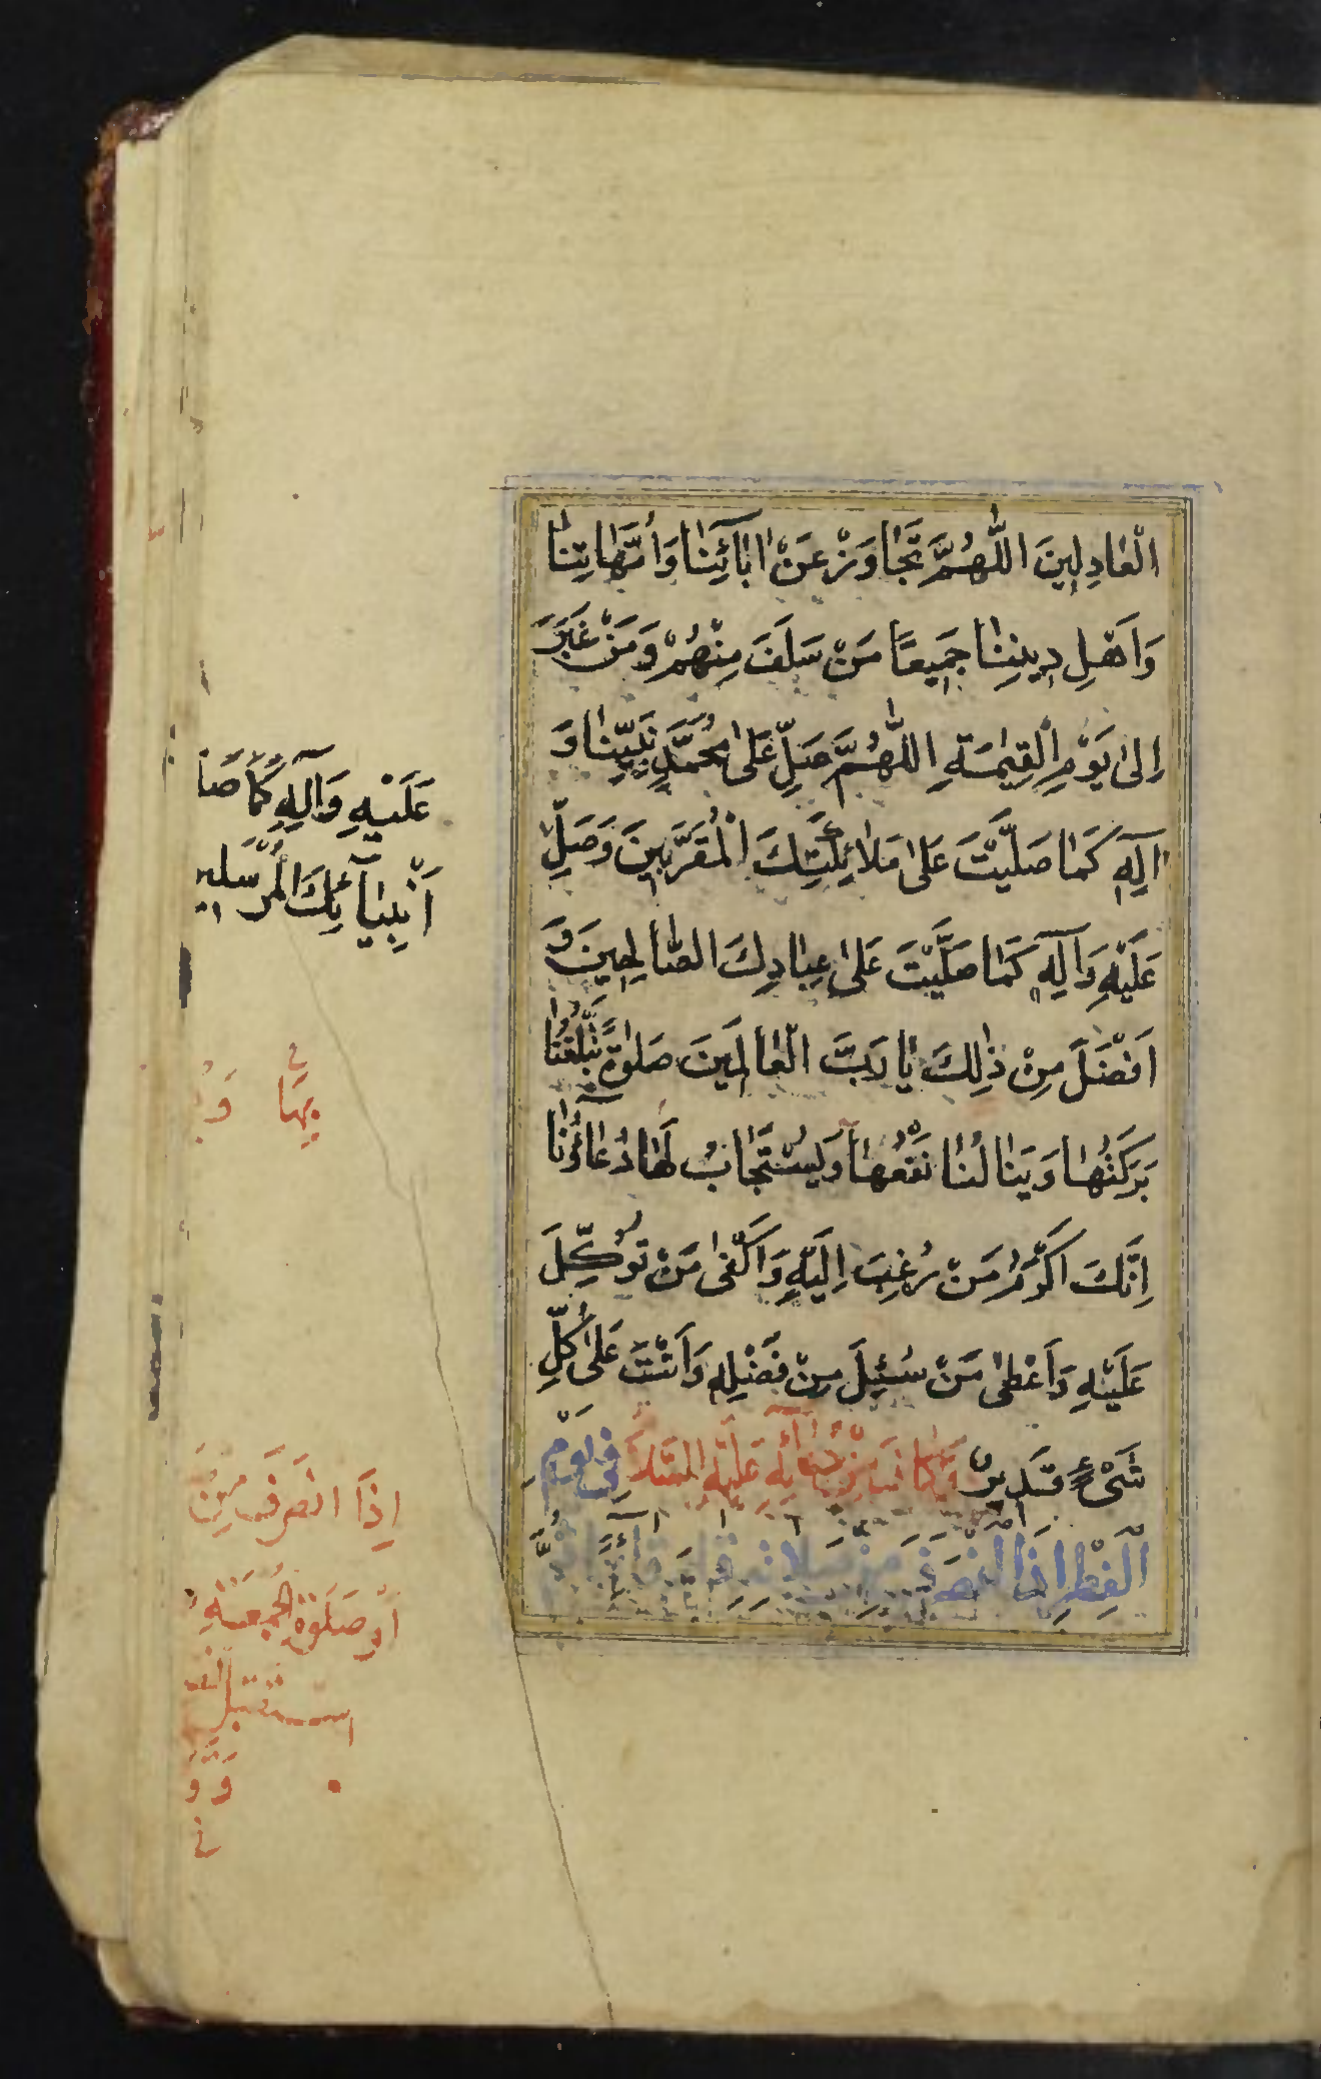 الْعَادِلِينَ اللّٰهُمَّ تَجَاوَزْ عَنْ اٰبَآئِنَا وَاُمَّهَاتِنَا
وَاَهْلِ دِينِنَا جَمِيعًا مَنْ سَلَفَ مِنْهُمْ وَمَنْ غَبَرَ
اِلىٰ يَوْمِ الْقِيٰمَةِ اللّٰهُمَّ صَلِّ عَلىٰ مُحَمَّدٍ نَبِيِّنَا وَ
اٰلِهِ كَمَا صَلَّيْتَ عَلىٰ مَلاٰئِكَتِكَ الْمُقَرَّبِينَ وَصَلِّ
عَلَيْهِ وَاٰلِهِ كَمَا صَلَّيْتَ عَلىٰ عِبَادِكَ الصَّالِحِينَ وَ
اَفْضَلَ مِنْ ذٰلِكَ يَا رَبَّ الْعَالَمِينَ صَلوٰةً تَبْلُغُنَا
بَرَكَتُهَا وَيَنَالُنَا نَفْعُهَا وَيُسْتَجَابُ لَهَا دُعَآؤُنَا
اِنَّكَ اَكْرَمُ مَنْ رُغِبَ اِلَيْهِ وَاَكْفىٰ مَنْ تُوُكِّلَ
عَلَيْهِ وَاَعْطىٰ مَنْ سُئِلَ مِنْ فَضْلِهِ وَاَنْتَ عَلىٰ كُلِّ
شَىْءٍ قَدِيرٌ وَكَانَ مِنْ دُعَآئِهِ عَلَيْهِ السَّلاٰمُ فِى يَوْمِ
الْفِطْرِ اِذَا انْصَرَفَ مِنْ صَلاٰتِهِ قَامَ قَآئِمًا ثُمَّ
عَلَيْهِ وَاٰلِهِ كَمَا
اَنْبِيَآئِكَ الْمُرْسَلِينَ
بِهَا
اِذَا انْصَرَفَ مِنْ
اَوْ صَلوٰةِ الْجُمُعَةِ
اسْتَقْبَلَ